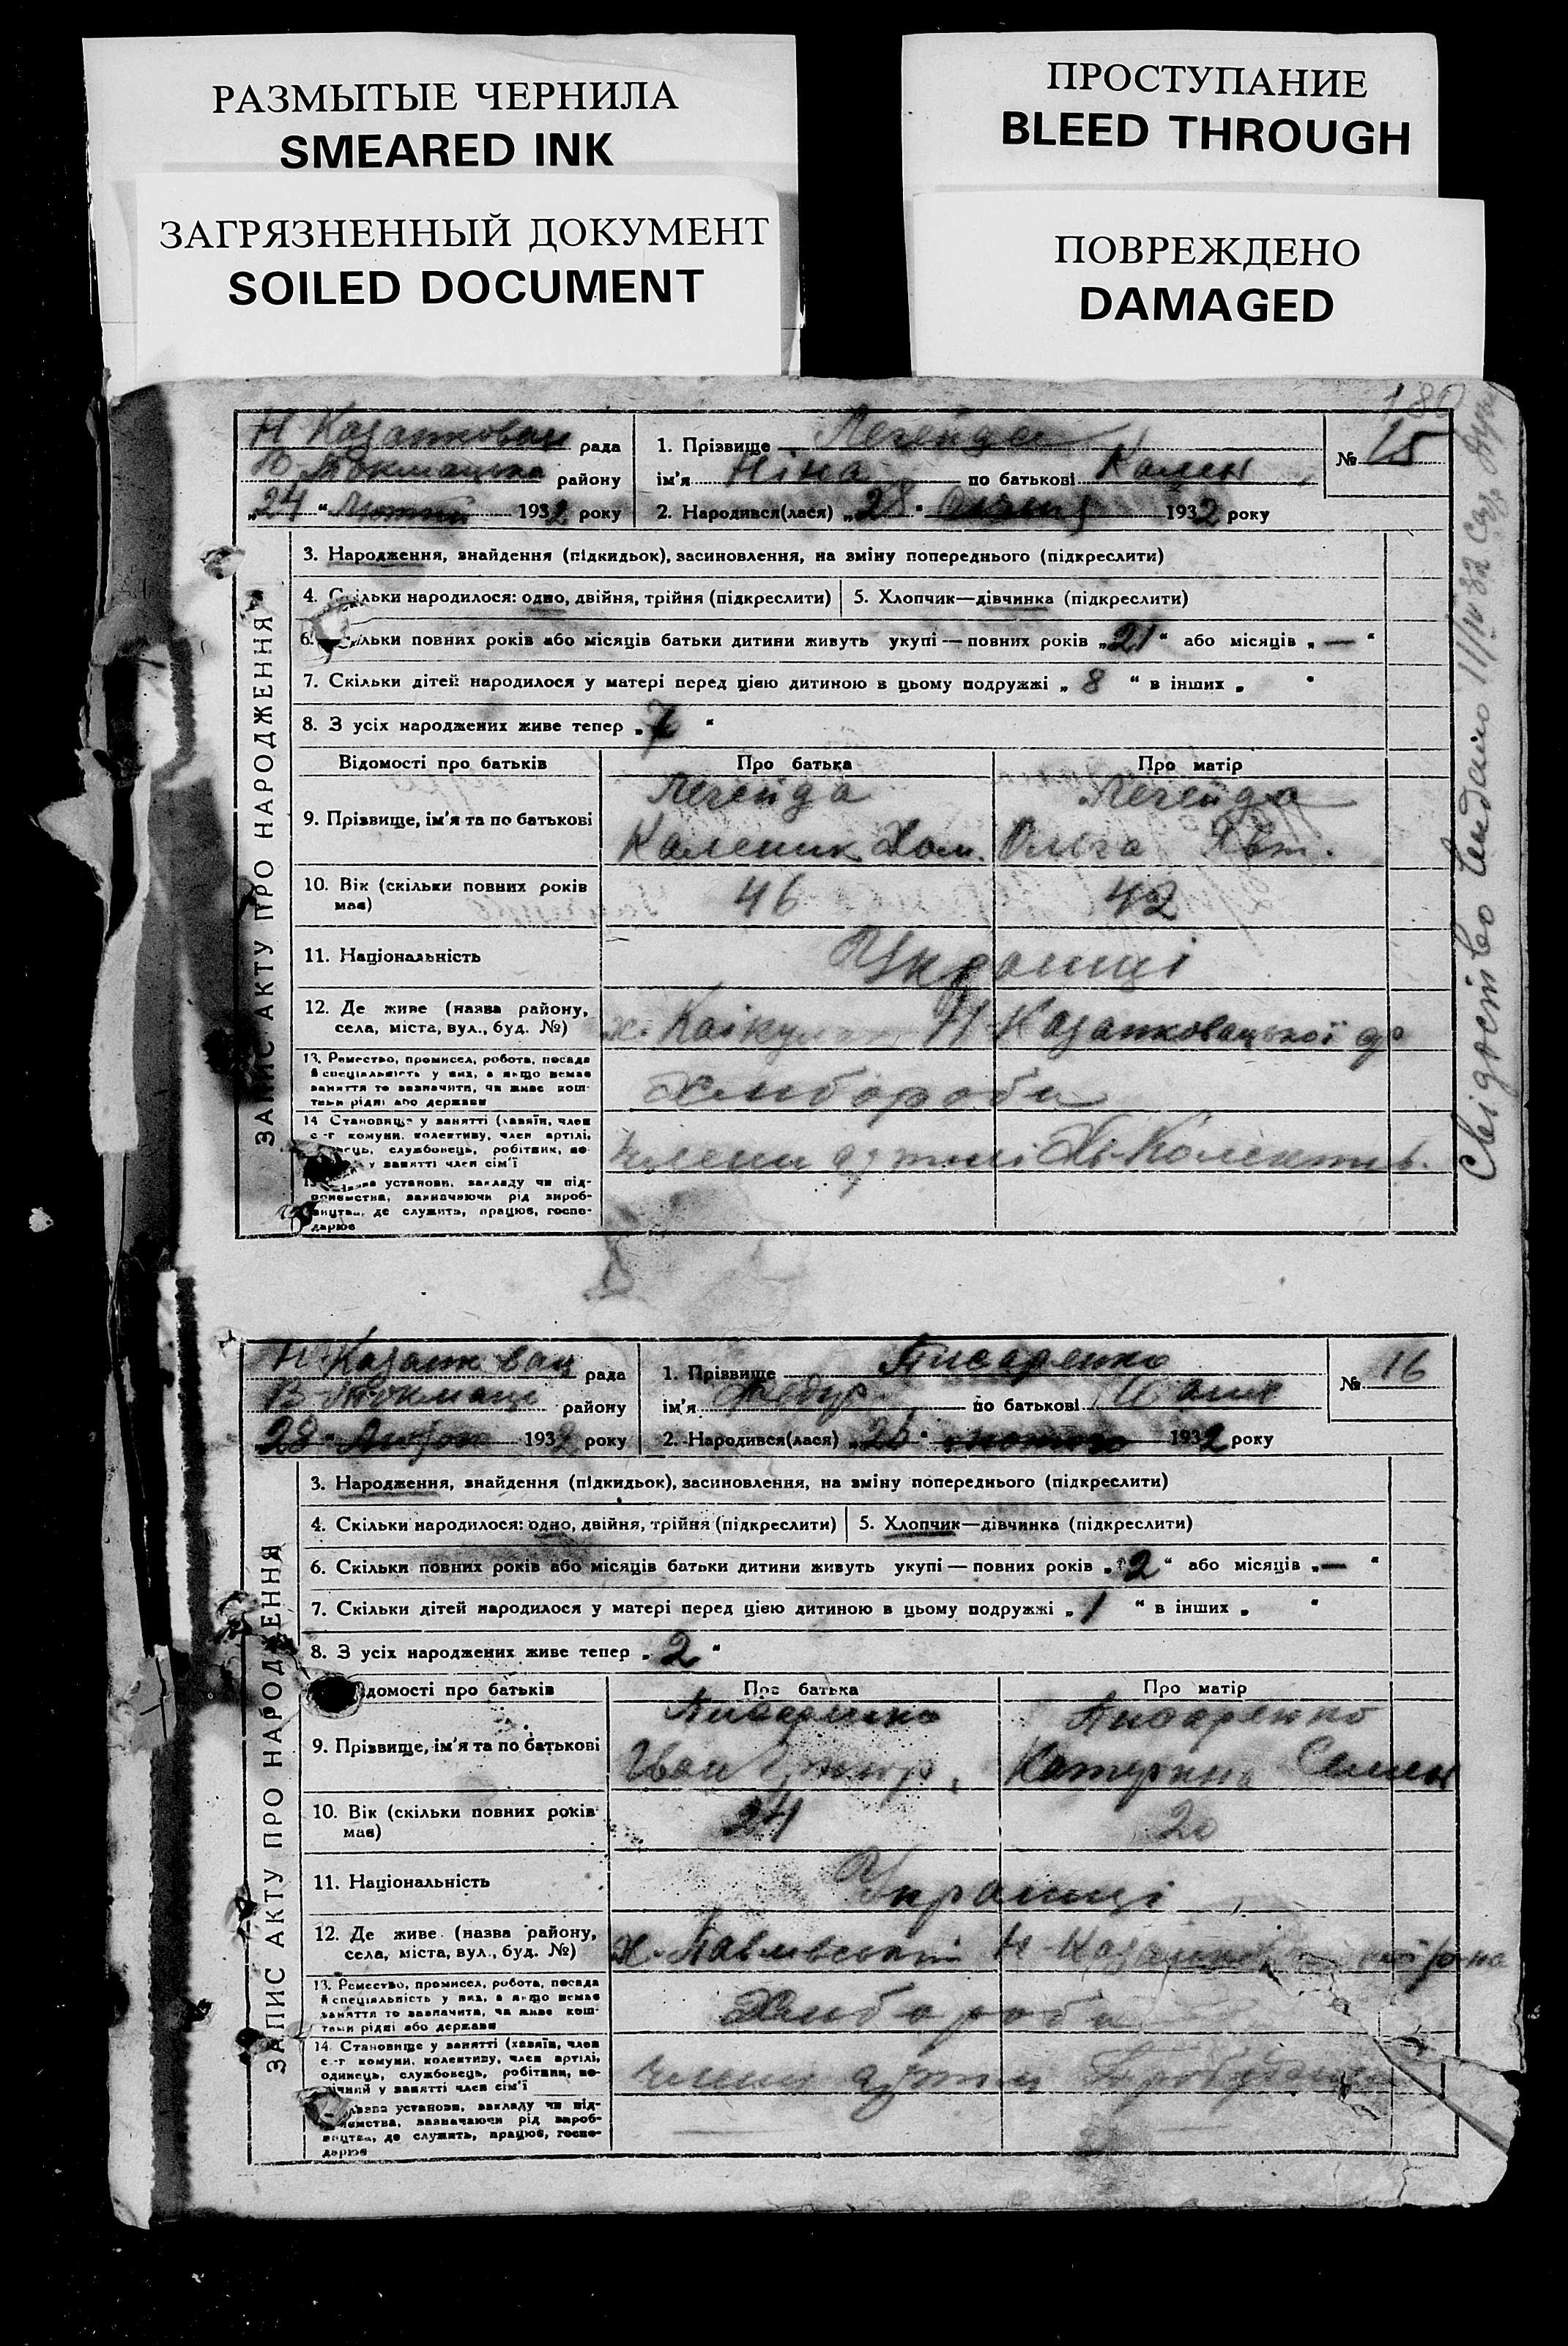 РАЗМЫТЫЕ ЧЕРНИЛА
SMEARED INK
ЗАГРЯЗНЕННЫЙ ДОКУМЕНТ
SOILED DOCUMENT
ПРОСТУПАНИЕ
BLEED THROUGH
ПОВРЕЖДЕНО
DAMAGED
180
Н Казанковац рада
В Токмацька району
„24 “ 1932 року
1. Прізвище Легенда
ім'я Ніна по батькові Кален
2. Народився(лася) „28 “ 1932 року
№ 15
ЗАПИС АКТУ ПРО НАРОДЖЕННЯ
3. Народження, знайдення (підкидьок), засиновлення, на зміну попереднього (підкреслити)
4. Скільки народилося: одно, двійня, трійня (підкреслити)
5. Хлопчик—дівчинка (підкреслити)
6. Скільки повних років або місяців батьки дитини живуть укупі — повних років „21“ або місяців „—“
7. Скільки дітей народилося у матері перед цією дитиною в цьому подружжі „ 8 “ в інших „ “
8. З усіх народжених живе тепер „7 “
Відомості про батьків Про батька Про матір
9. Прізвище, ім'я та по батькові
Легенда Легенда
Каленик Хом. Ольга
10. Вік (скільки повних років має) 46 42
11. Національність Українці
12. Де живе (назва району, села, міста, вул., буд. №)
х. Н Казанковацької
13. Ремество, промисел, робота, посада й спеціяльність у них, а якщо немає заняття то зазначити, чи живе коштами рідні або держави
Хлибороби
14 Становище у занятті (хазяїн, член с.-г. комуни, колективу, член артілі, службовець, робітник, у занятті член сім'ї
члени артилі
установи, закладу чи підприємства, зазначаючи рід виробництва, де служить, працює, господарює
Свідоство видано 11/IV 32
Н-Казанковац рада
В-Токмаць району
„28“ 1932 року
1. Прізвище Писаренко
ім'я Федір по батькові
2. Народився(лася) „ “ лютого 1932 року
№ 16
ЗАПИС АКТУ ПРО НАРОДЖЕННЯ
3. Народження, знайдення (підкидьок), засиновлення, на зміну попереднього (підкреслити)
4. Скільки народилося: одно, двійня, трійня (підкреслити)
5. Хлопчик—дівчинка (підкреслити)
6. Скільки повних років або місяців батьки дитини живуть укупі — повних років „2“ або місяців „—“
7. Скільки дітей народилося у матері перед цією дитиною в цьому подружжі „ 1 “ в інших „ “
8. З усіх народжених живе тепер „ 2 “
Відомості про батьків Про батька Про матір
9. Прізвище, ім'я та по батькові
Писаренко Писаренко
Іван Катерина Семен
10. Вік (скільки повних років має) 24 20
11. Національність Українці
12. Де живе (назва району, села, міста, вул., буд. №)
х. Павлівський
13. Ремество, промисел, робота, посада й спеціяльність у них, а якщо немає заняття то зазначити, чи живе коштами рідні або держави
Хлибороби
14. Становище у занятті (хазяїн, член с.-г. комуни, колективу, член артілі, одинець, службовець, робітник, помічний у занятті член сім'ї
члени
Назва установи, закладу чи підприємства, зазначаючи рід виробництва, де служить, працює, господарює